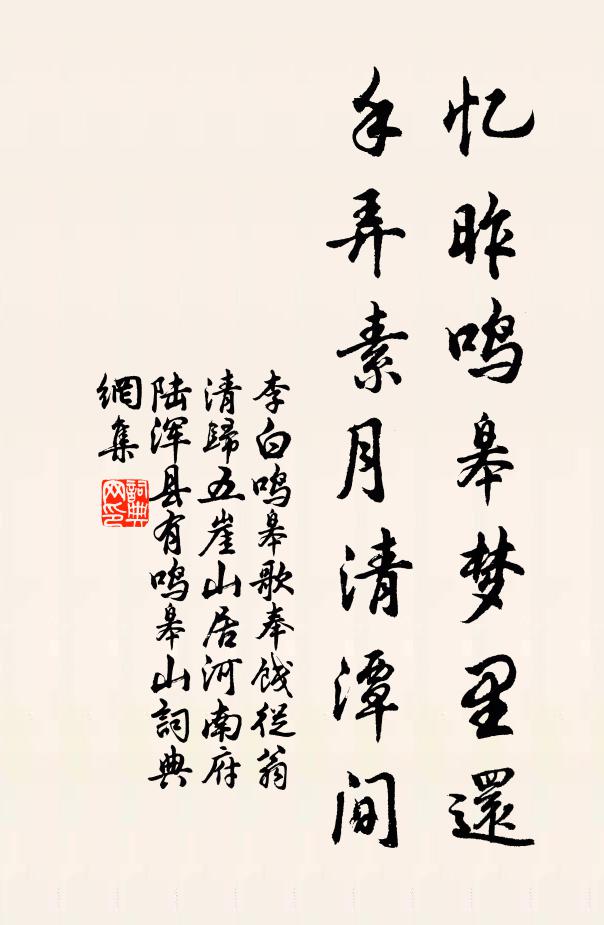 忆昨鸣皋梦里還
手弄素月清潭间
李白鸣皋歌奉饯從翁
清歸五崖山居河南府
陆浑县有鸣皋山詞典
網集
詞典
网印